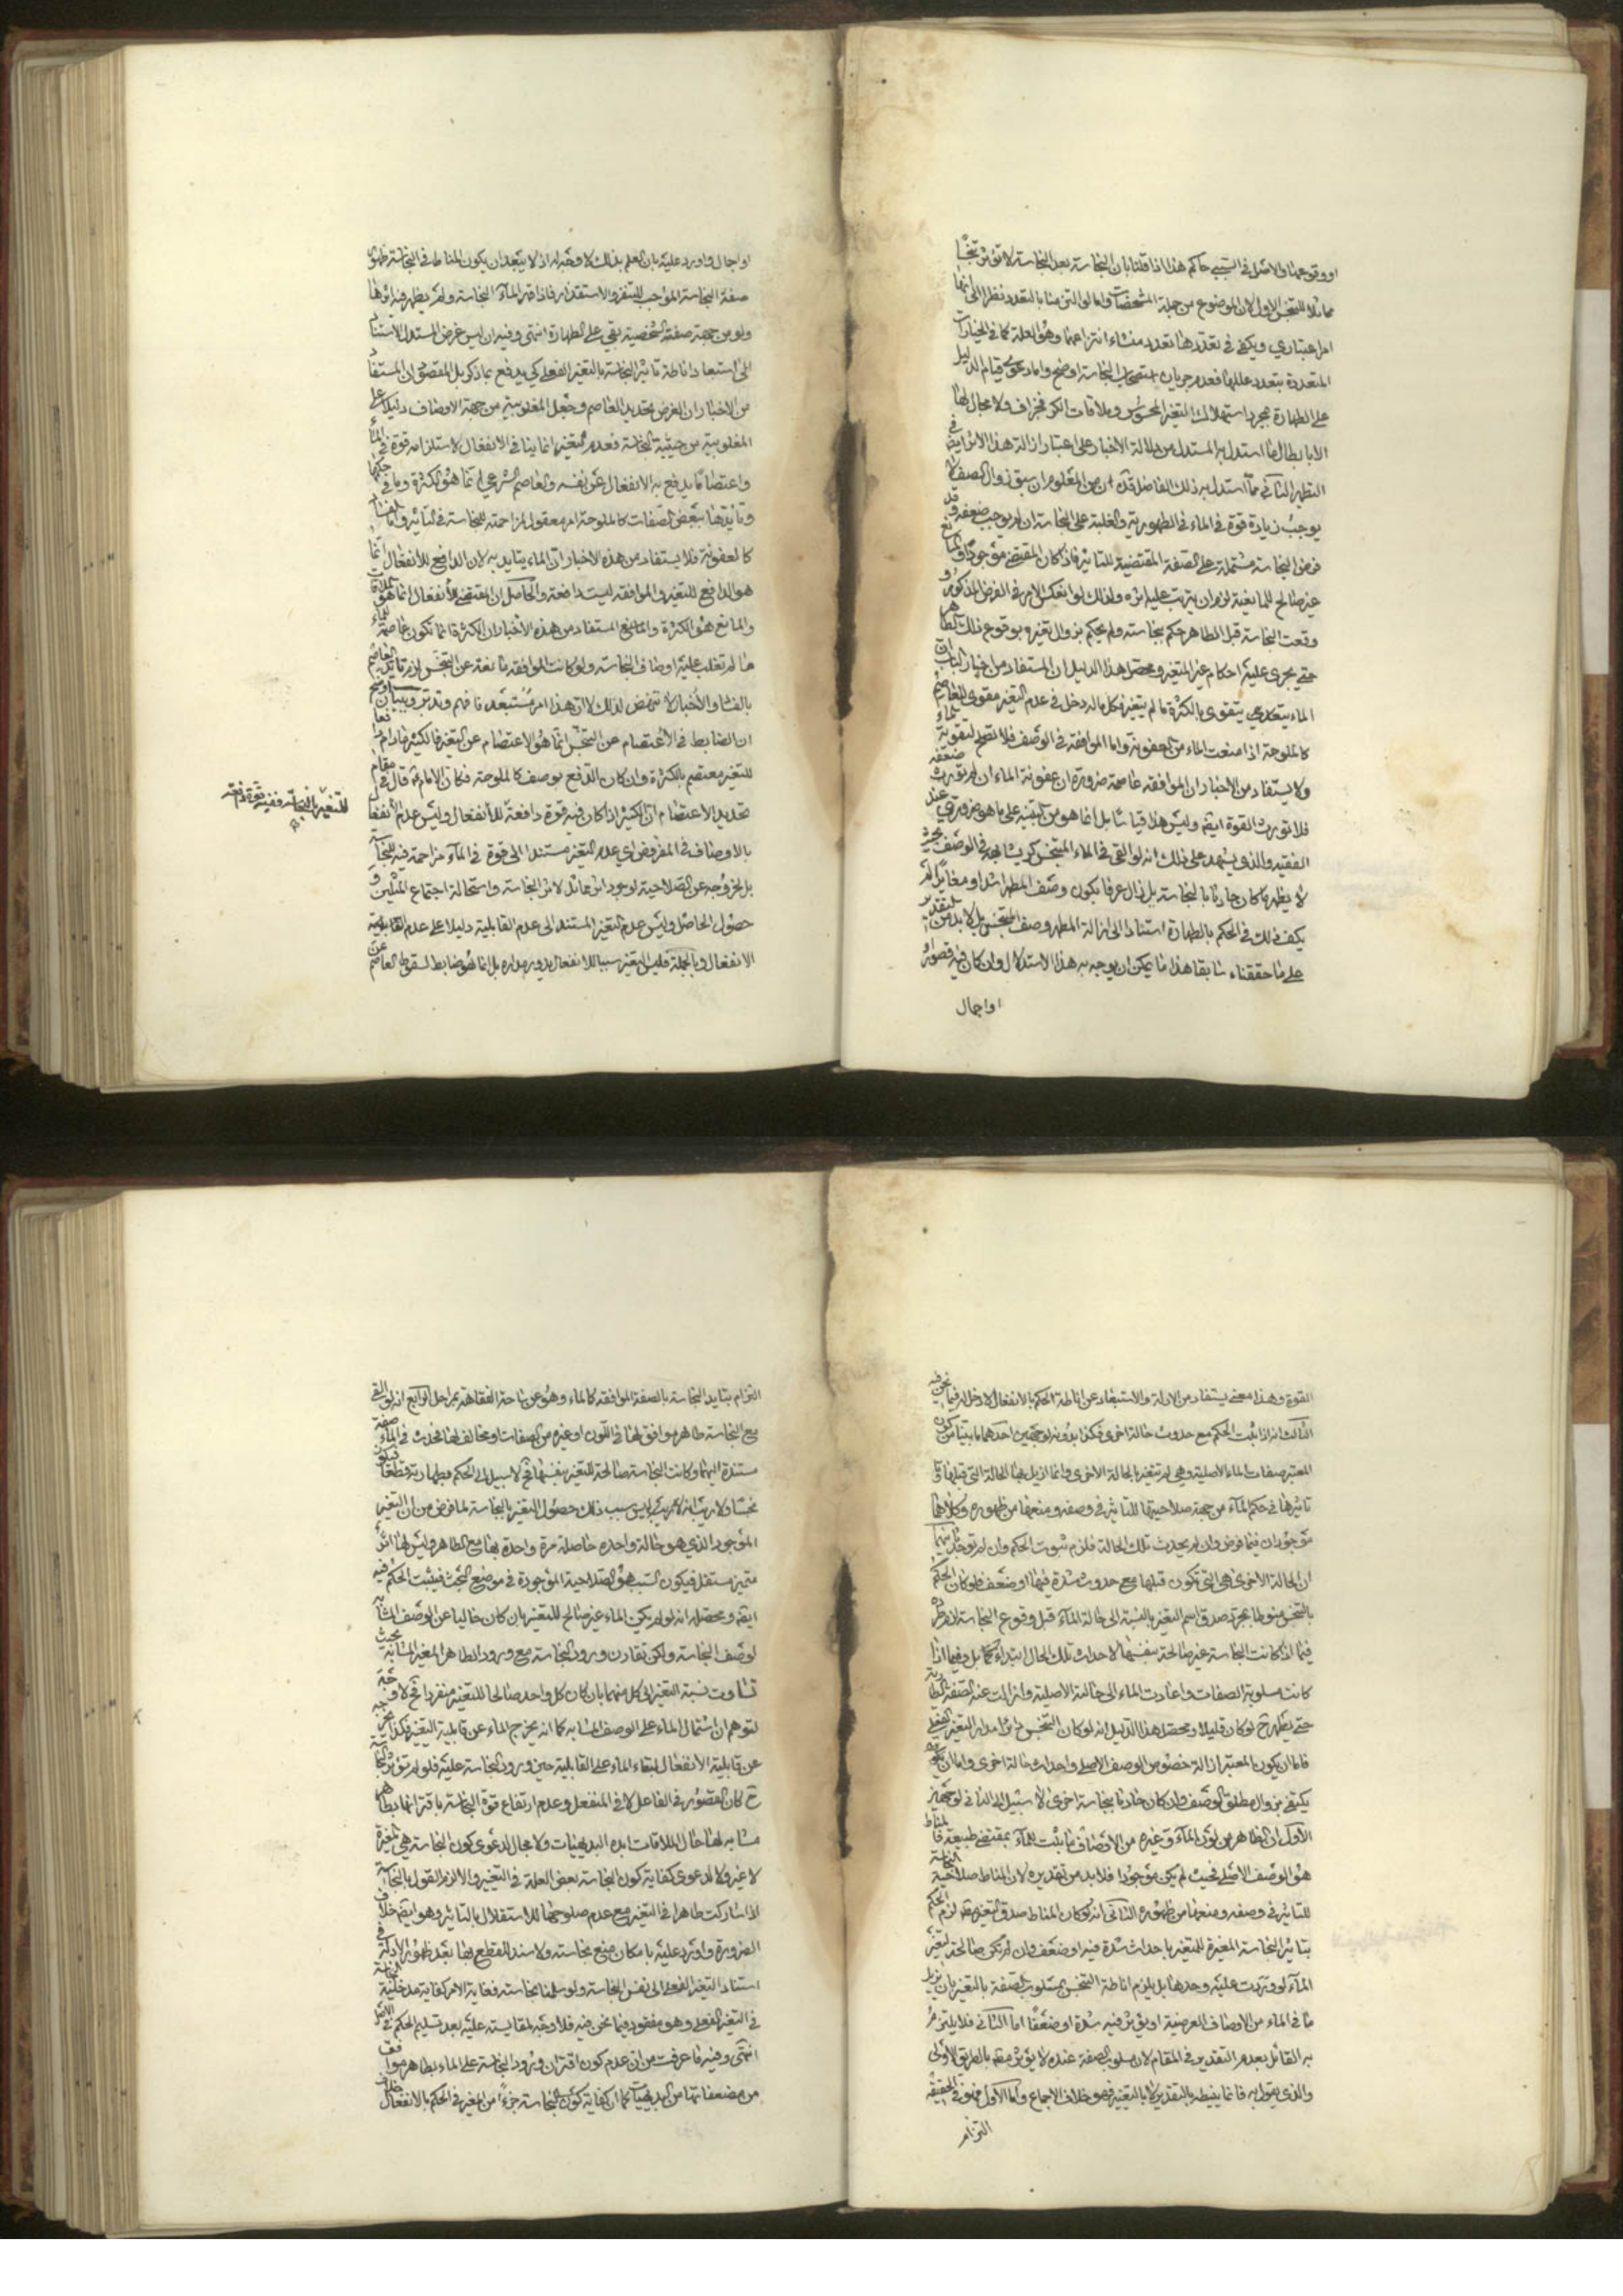 او وقوعهما والاصل في السببي حاكم هذا اذا قلنا بان النجاسة بعد النجاسة لا تؤثر تنجسا
مماثلا للتنجس الاول لان الموضوع من جملة المشخصات واما لو التزمنا بالتعدد نظرا الى انها
امر اعتباري ويكفي في تعددها تعدد منشاء انتزاعها وهو العلة كما في الخيارات
المتعددة بتعدد عللها فعدم جريان استصحاب النجاسة اوضح واما دعوى قيام الدليل
على الطهارة بمجرد استهلاك التغير المحسوس وملاقات الكر فجزاف ولا مجال لها
الا بابطال ما استدل به المستدل من دلالة الاخبار على اعتبار ازالة هذا الاثر ايضا في
التطهير الثاني مما استدل به ذلك الفاضل قده ان من المعلوم ان سبق زوال الصفة لا
يوجب زيادة قوة في الماء في الطهورية والغلبة على النجاسة ان لم يوجب ضعفه وقد
فرض النجاسة مشتملة على الصفة المقتضية للتاثير فاذا كان المقتضي موجودا والمانع
غير صالح للمانعية لزم ان يترتب عليه اثره ولذلك لو انعكس الامر في الفرض المذكور و
وقعت النجاسة قبل الطاهر حكم بنجاسته ولم يحكم بزوال تغيره بوقوع ذلك الطاهر
حتى يجري عليه احكام غير المتغير ومحصل هذا الدليل ان المستفاد من اخبار الباب ان
الماء يتعدى يتقوى بالكثرة ما لم يتغير فكل ما له دخل في عدم التغير مقوى للعاصم
كالملوحة اذا منعت الماء من العفونة واما الموافقة في الوصف فلا تصلح لتقوية الماء
ولا يستفاد من الاخبار ان الموافقة عاصمة ضرورة ان عفونة الماء ان لم تورث ضعفه
فلا تورث القوة ايضا وليس هذا قياسا بل انما هو من التنبيه على ما هو ضروري عند
الفقيه والذي يشهد على ذلك انه لو القي في الماء المتنجس كر يشابهه في الوصف بمجرد
لا يطهر ما كان حادثا بالنجاسة بل زال عرفا بكون وصف المطهر اشد او مغايرا لم
يكف ذلك في الحكم بالطهارة استنادا الى ازالة المطهر وصف المتنجس بل لا بد من التقدير
على ما حققناه سابقا هذا ما يمكن ان يوجه به هذا الاستدلال وان كان فيه قصور او
او اجمال
او اجمال واورد عليه بان العلم بذلك لا وجه له اذ لا يبعد ان يكون المناط في النجاسة ظهور
صفة النجاسة الموجب للتنفر والاستقذار فاذا قهر الماء النجاسة ولم يظهر فيه اثرها
ولو من جهة صفته الشخصية بقي على الطهارة انتهى وفيه ان ليس غرض المستدل الاستناد
الى استبعاد اناطة تاثير النجاسة بالتغير الفعلي كي يدفع بما ذكر بل المقصود ان المستفاد
من الاخبار ان الغرض تحديد العاصم وجعل المغلوبية من جهة الاوصاف دليلا على
المغلوبية من حيثية النجاسة فعدم التغير انما ينافي الانفعال لاستلزامه قوة في الماء
واعتصاما يدفع به الانفعال عن نفسه والعاصم الشرعي انما هو الكثرة وما في حكمها
وتايدها ببعض الصفات كالملوحة امر معقول لمزاحمته للنجاسة في التاثير واما
كالعفونة فلا يستفاد من هذه الاخبار ان الماء يتايد به لان الدافع للانفعال انما
هو الدافع للتغير والموافقة ليست دافعة والحاصل ان المقتضي للانفعال انما هو الملاقات
والمانع هو الكثرة والمانع المستفاد من هذه الاخبار ان الكثرة انما تكون عاصمة للماء
ما لم تغلب عليه اوصاف النجاسة ولو كانت الموافقة مانعة عن التنجس لزم تايد العاصم
بالفساد والاخبار لا تنهض لذلك لان هذا امر مستبعد فافهم وتدبر وببيان اوضح
ان الضابط في الاعتصام عن التنجس انما هو الاعتصام عن التغير فالكثير مادام دافعا
للتغير معتصم بالكثرة وان كان بالدفع بوصف كالملوحة فكان الامام ع قال في مقام
تحديد الاعتصام ان الكثير اذا كان فيه قوة دافعة للانفعال وليس عدم الانفعال
للتغير بالنجاسة ففيه قوة دافعة
بالاوصاف في المفروض اي عدم التغير مستندا الى قوة في الماء مزاحمة فيه للنجاسة
بل لخروجه عن الصلاحية لوجود اثر مماثل لاثر النجاسة واستحالة اجتماع المثلين و
حصول الحاصل وليس عدم التغير المستند الى عدم القابلية دليلا على عدم القابلية
الانفعال وبالجملة فليس التغير سببا للانفعال يدور مداره بل انما هو ضابط لسقوط العاصم عن
القوة وهذا معنى يستفاد من الادلة والاستبعاد عن اناطة الحكم بالانفعال لا دخل له فيما نحن فيه
الثالث انه اذا ثبت الحكم مع حدوث حالة اخرى فكذا بدونه لوجهين احدهما ما بيننا من كون
المعتبر صفات الماء الاصلية وهي لم تتغير بالحالة الاخرى وانما ازيل بها الحالة التي قبلها وقد
تاثيرها في حكم الماء من جهة صلاحيتها للتاثير في وصفه ومنعها من ظهوره وكلاهما
موجودان فيما فرض وان لم يحدث تلك الحالة فلزم ثبوت الحكم وان لم توجد ثانيهما
ان الحالة الاخرى هي التي تكون قبلها مع حدوث شدة فيها او ضعف فلو كان الحكم
بالتنجس منوطا بمجرد صدق اسم التغير بالنسبة الى حالة الماء قبل وقوع النجاسة لزم طرده
فيما اذا كانت النجاسة غير صالحة بنفسها لاحداث تلك الحال ابتداء كما بل وفيما اذا
كانت مسلوبة الصفات واعادت الماء الى حالته الاصلية وازالت عنه الصفة الطارية
حتى يطهر ح لو كان قليلا ومحصل هذا الدليل انه لو كان التنجس دائرا مدار التغير الفعلي
فاما ان يكون المعتبر ازالة خصوص الوصف الاصلي واحداث حالة اخرى واما ان يكون
يكتفي بزوال مطلق الوصف وان كان حادثا بنجاسة اخرى لا سبيل الى الثاني لوجهين
الاول ان الظاهر من لون الماء وغيره من الاوصاف ما يثبت للماء بمقتضى طبيعته فالمناط
هو الوصف الاصلي فحيث لم يكن موجودا فلا بد من تقديره لان المناط صلاحية النجاسة
للتاثير في وصفه ومنعها من ظهوره الثاني انه لو كان المناط صدق التغير به لزم الحكم
بتاثير النجاسة المغيرة للمتغير باحداث شدة فيه او ضعف وان لم تكن صالحة لتغير
الماء لو وردت عليه وحدها بل يلزم اناطة التنجس بمسلوب الصفة بالتغير بان يزيل
ما في الماء من الاوصاف العرضية او يؤثر فيه شدة او ضعفا اما الثاني فلا يلتزم
به القائل بعدم التقدير في المقام لان مسلوب الصفة عنده لا يؤثر منه بالطريق الاولى
والذي يقول به فانما ينيطه بالتقدير لا بالتغير فهو خلاف الاجماع واما الاول فهو في الحقيقة
التزام
التزام بتايد النجاسة بالصفة الموافقة كالماء وهو عن ساحة الفقاهة بمراحل الرابع انه لو القي
مع النجاسة طاهر موافق لها في اللون او غيره من الصفات او مخالف لها فحدث في الماء صفة
مستندة اليهما وكانت النجاسة صالحة للتغير بنفسها فح لا سبيل الى الحكم بطهارته قطعا فيكون
نجسا ولا ريب انه ليس سبب ذلك حصول التغير بالنجاسة لما فرض من ان التغير
الموجود الذي هو حالة واحدة حاصلة مرة واحدة بها مع الطاهر وليس لها اثر
متميز مستقل فيكون السبب هو الصلاحية الموجودة في موضع البحث فيثبت الحكم فيه
ايضا ومحصله انه لو لم يكن الماء غير صالح للتغير بان كان خاليا عن الوصف المشابه
لوصف النجاسة ولكن تقارن ورود النجاسة مع ورود الطاهر المغير المشابه بحيث
تساوت نسبة التغير الى كل منهما بان كان كل واحد صالحا للتغير منفردا فح لا وجه
لتوهم ان اشتمال الماء على الوصف المشابه كما انه يخرج الماء عن قابلية التغير فكذا يخرجه
عن قابلية الانفعال لبقاء الماء على القابلية حين ورود النجاسة عليه فلو لم تؤثر النجاسة
ح كان القصور في الفاعل لا في المنفعل وعدم ارتفاع قوة النجاسة باقترانها بطاهر
مشابه لها حال الملاقات ابده البديهيات ولا مجال لدعوى كون النجاسة هي المغيرة
لا غير ولا لدعوى كفاية كون النجاسة بعض العلة في التغيير والا لزم القول بالنجاسة
اذا شاركت طاهرا في التغير مع عدم صلوحها للاستقلال بالتاثير وهو ايضا خلاف
الضرورة واورد عليه بامكان منع نجاسته ولا سند للقطع بها بعد ظهور الادلة في
استناد التغير الفعلي الى نفس النجاسة ولو سلمنا نجاسته فغاية الامر كفاية مدخلية النجاسة
في التغير الفعلي وهو مفقود فيما نحن فيه فلا وجه لمقايسته عليه بعد تسليم الحكم في الاصل
انتهى وفيه ما عرفت من ان عدم كون اقتران ورود النجاسة على الماء بطاهر موافق
من مضعفاتها من البديهيات كما ان كفاية كون النجاسة جزءا من المغير في الحكم بالانفعال خلاف